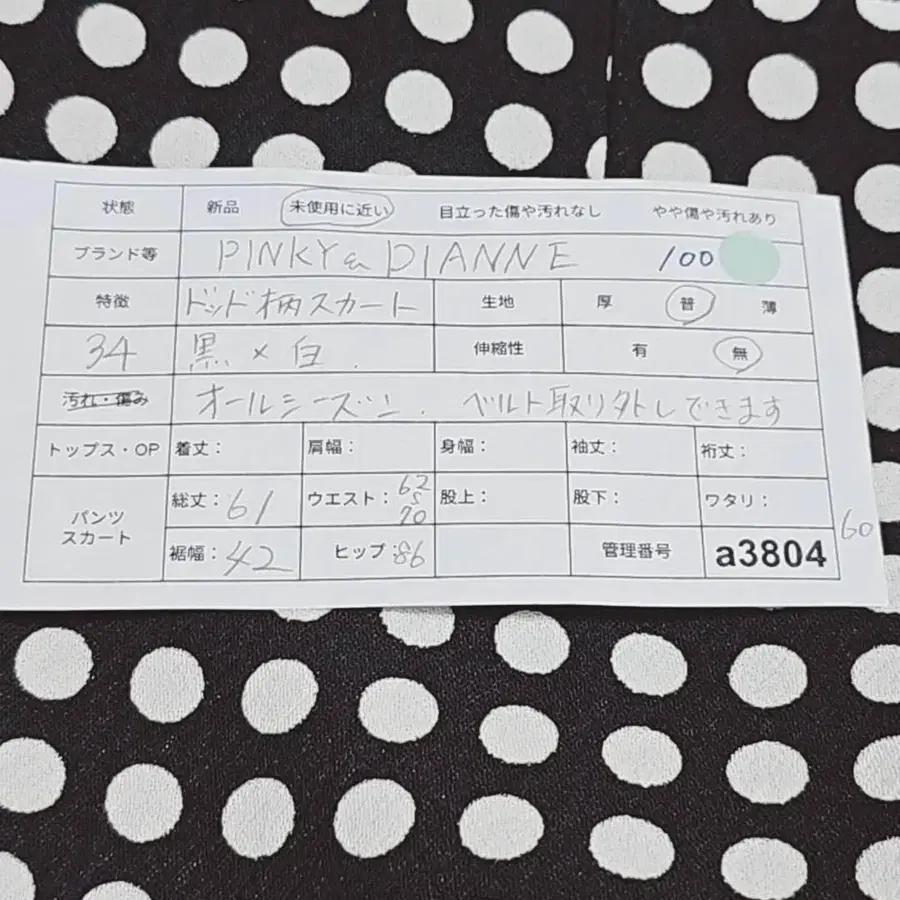 状態 新品 未使用に近い 目立った傷や汚れなし やや傷や汚れあり
ブランド等 PINKY & DIANNE 100
特徴 ドッド柄スカート 生地 厚 普 薄
34 黒 × 白. 伸縮性 有 無
汚れ・傷み オールシーズン. ベルト取り外しできます
トップス・OP 着丈: 肩幅: 身幅: 袖丈: 裄丈:
パンツ スカート 総丈:61 ウエスト:62 S 70 股上: 股下: ワタリ:
裾幅:42 ヒップ:86 管理番号 a3804 60